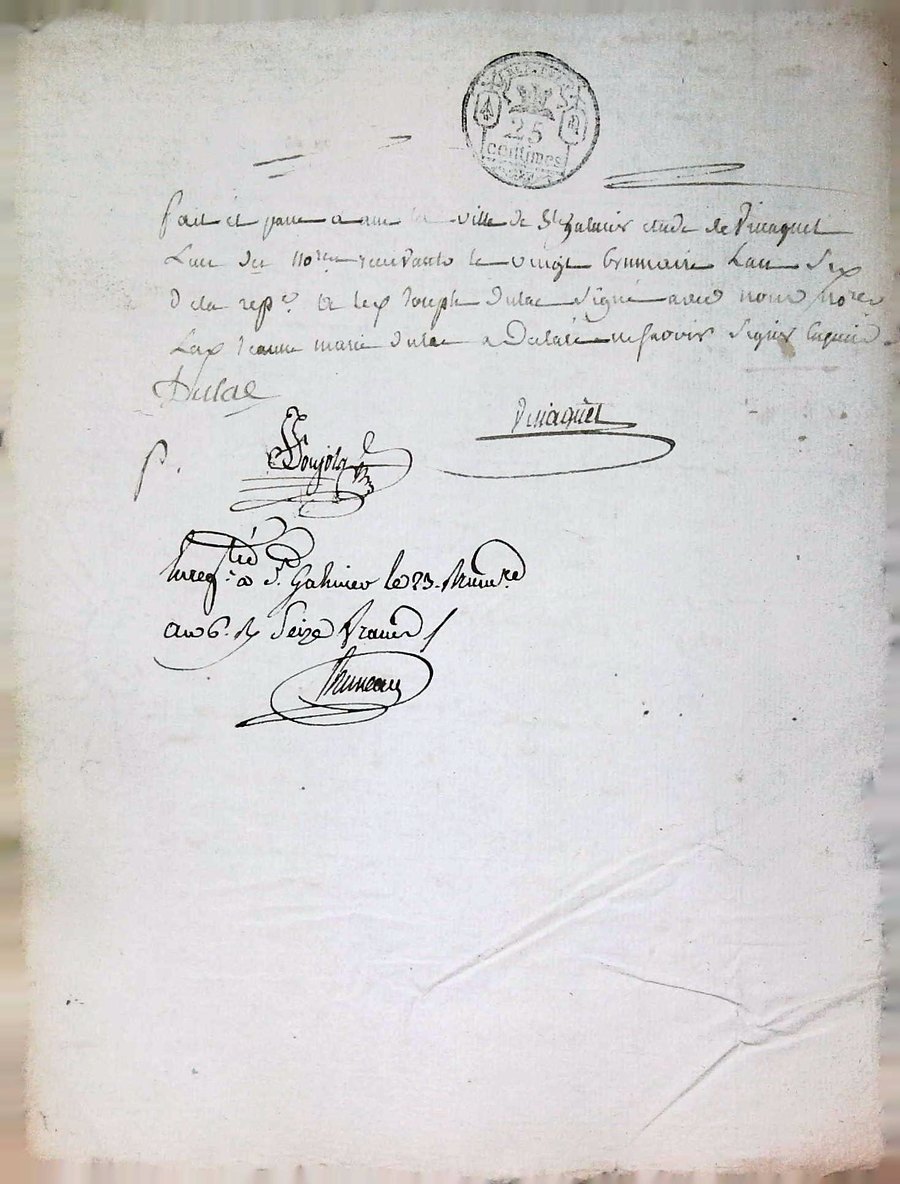 25
centimes
fait et passé a la ville de St Galmier etude de Vinaguet
L'un des no.res recevants le vingt brumaire L'an Six
De la rep.e Et led Joseph Dulac Signé avec nous no.res
Lad Jeanne marie Dulac a Declaré ne Scavoir Signer Enquise
Dulac
Vinaguet
P.
Enreg.tré a St. Galmier le 23. Brum.re
an 6. R Seize francs
Bruneau